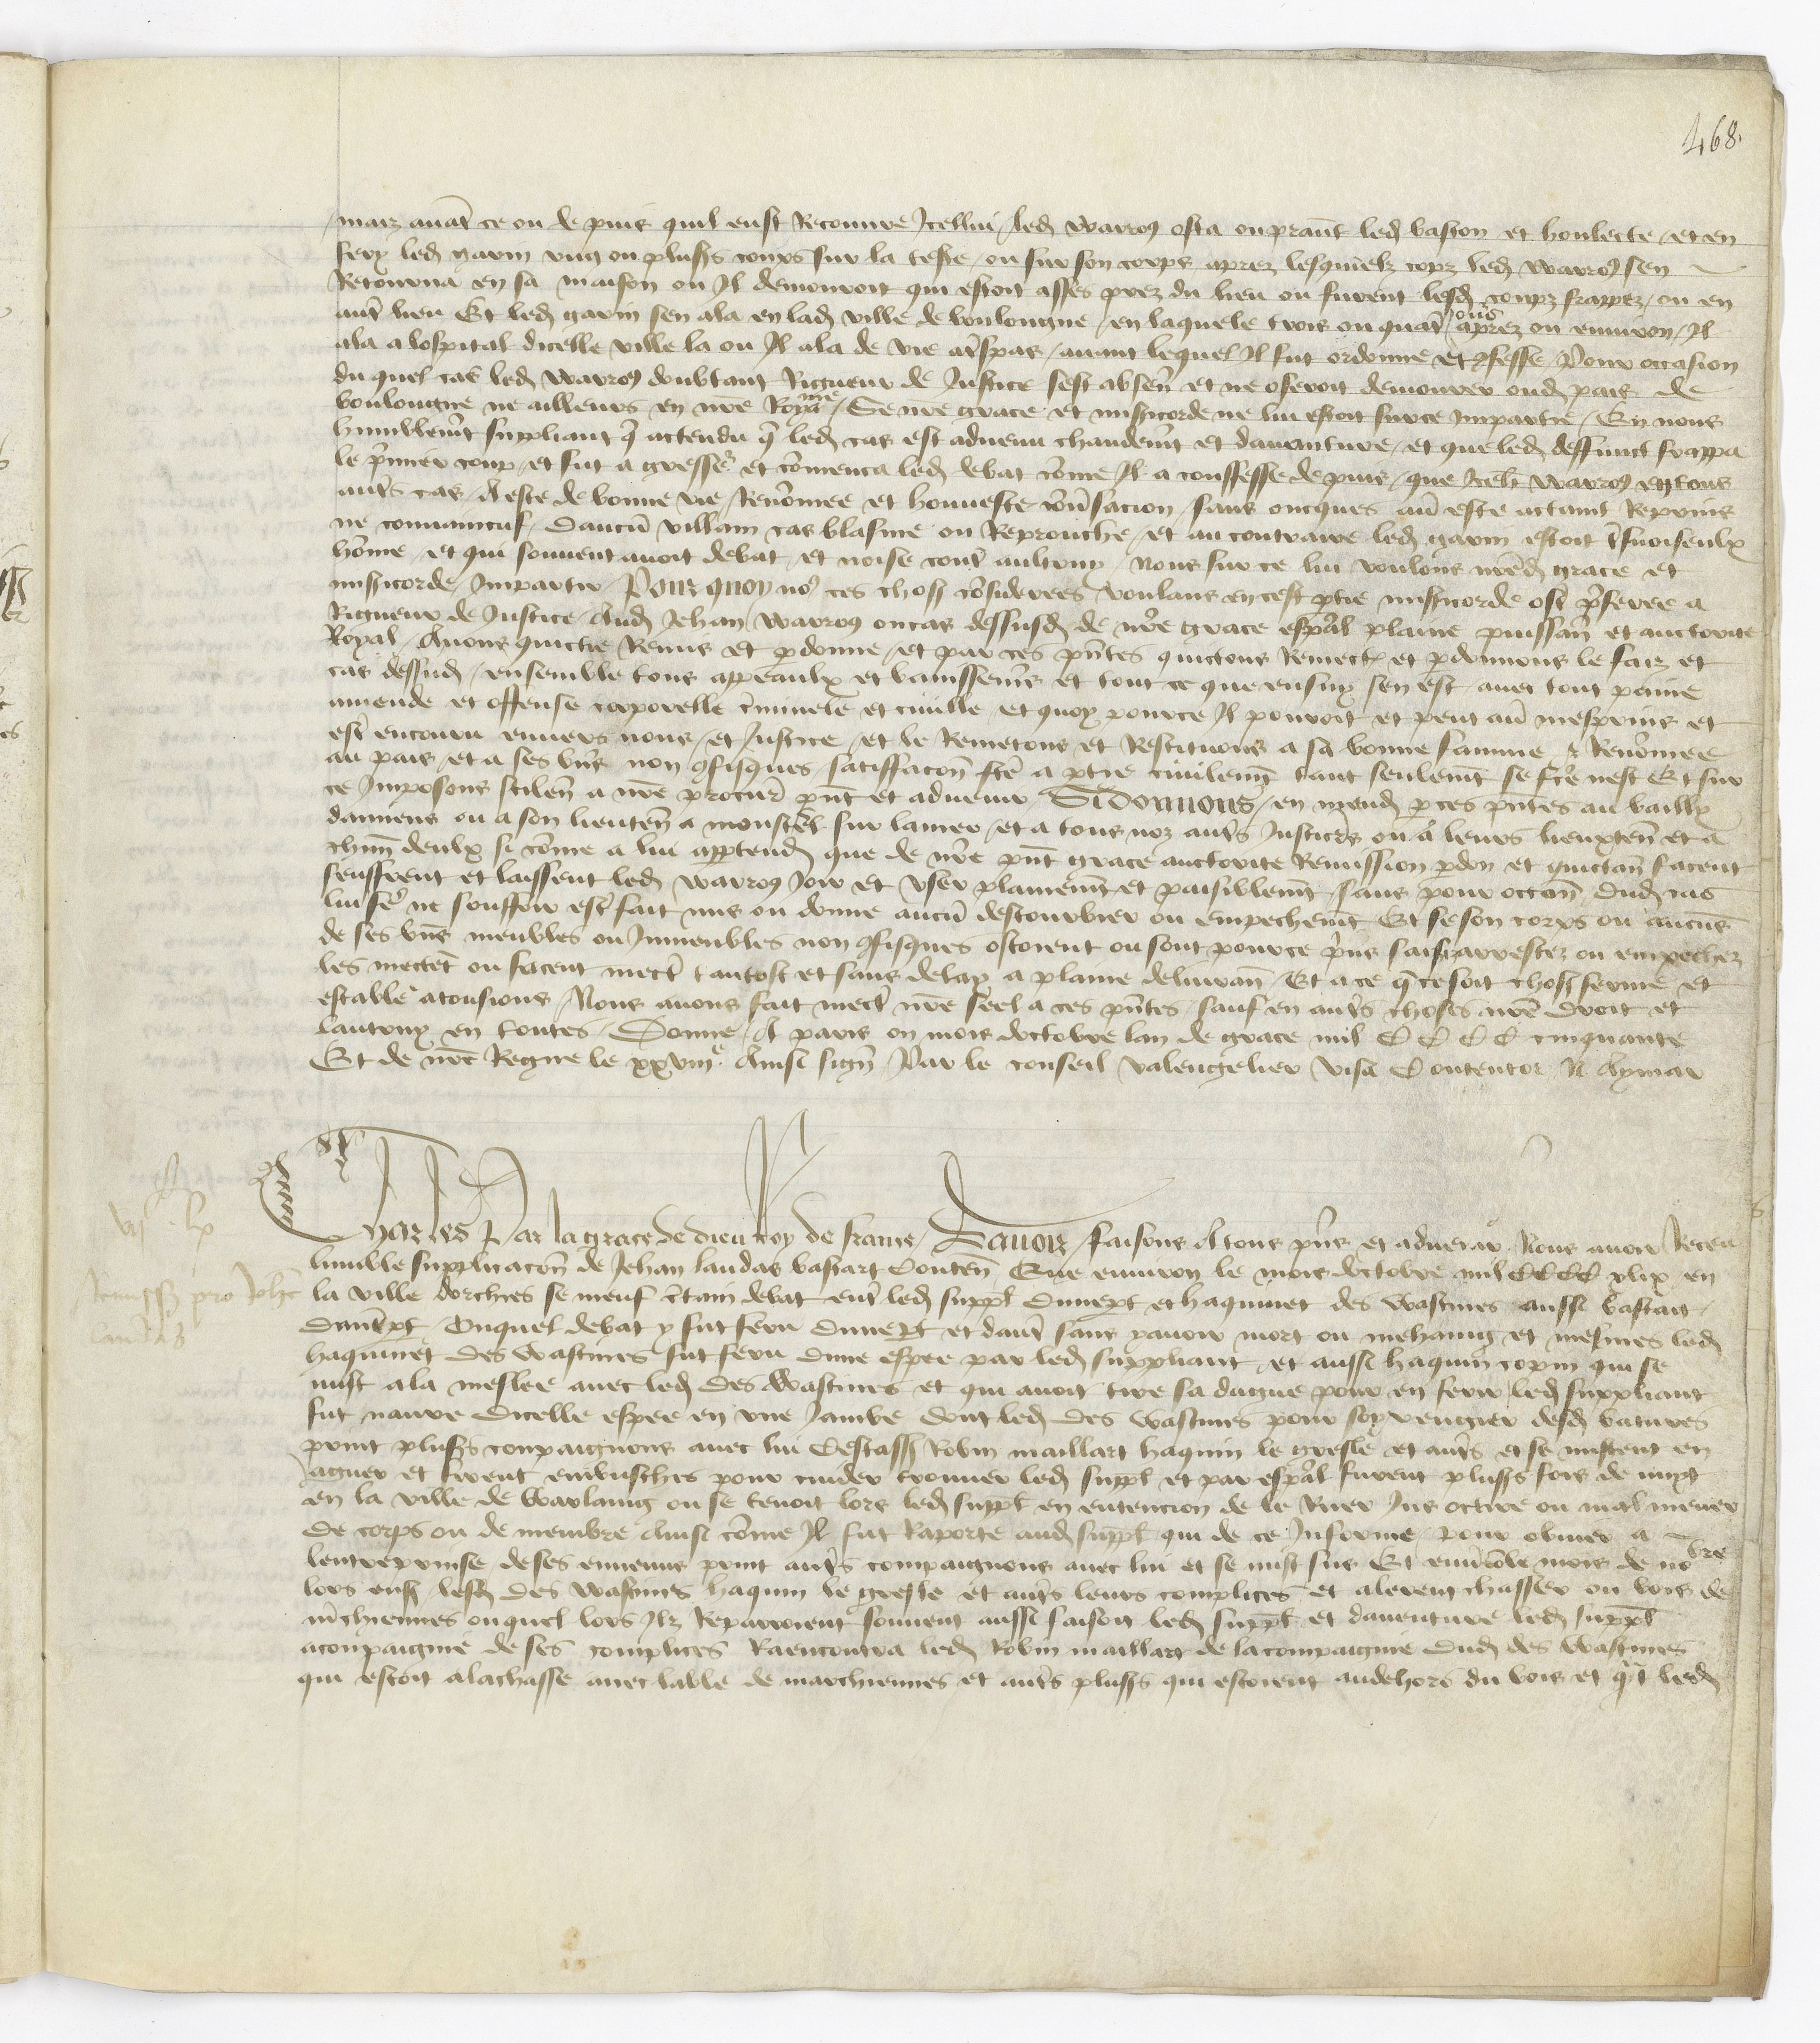 468.
maiz avãt ce ou de puis quil eust Recouvre Icellui / led waroq osta ou prant led baston et houlecte / et en
fery led garin ung ou pluss coups sur la teste / ou sur son corps aprez lesquielz copz led waroq sen
Retourna en sa maison ou Il demouroit qui estoit asses prez du lieu ou furent lesd coupz frappez / ou en
aut lieu Et led garin sen ala en lad ville de boulongne / en laquele trois ou quat Jours aprez ou environ / Il
ala a lospital dicelle ville la ou Il ala de vie a trespas / avant lequel Il fut ordonne et gfesse / Pour occasion
du quel cas led waroq doubtant Rigueur de Justice sest absen et ne oseroit demourer oud pais de
boulongne ne ailleurs en nre Royaume / Se nre grace et misicorde ne lui estoit sur ce Impartie / En nous
humblemt suppliant q actendu q led cas est advenu chaudemt et daventure / et que led deffunct frappa
le pmier coup / et fut agresser et comenca led debat come Il a confesse depuis / que Icell waroq en tous
auts cas / A este de bonne vie / Renomee et honneste conversacion / sans oncques au este actaint Reprins
ne convaincus / Daucu villain cas blasme ou Reprouche / et au contraire led garin estoit tsnoiseulx
home / et qui souvent avoit debat / et noise cont aultruy / Nous sur ce lui voulons nred grace et
misicorde / Impartir / Pourquoy no ces choss considerees voulans en cest ptie misicorde est pferee a
Rigueur de Justice / Aud Jehan waroq ou cas dessusd de nre grace espal plaine puissan et auctorite
Royal / Avons quictie Remis et pdonne / et par ces pntes quictons Remect et pdonnons le faiz et
cas dessusd / ensemble tous appeaulx et banissemens et tout ce que ensuy sen est avec tout peine
amende et offense corporelle cminele et civille / et quoy pource Il pouroit et peut au mesprins et
est encouru envers nous / et Justice / et le Remetons et Restituons a sa bonne famme & Renomee
au pais / et a ses bns non gfisques / satiffacon fte a ptie civilemt tant seulemt se fte nest Et sur
ce Imposons silen a nre procur pnt et advenir / Si Donnons / en mend p ces pntes au bailly
damiens ou a son lieuten a monstel sur la mer / et a tous noz auts Justicrs ou a leurs lieuxten et a
chun deulx si come a lui apptend que de nre pnt grace auctorite Remission pdon et quictan facent
seuffrent et laissent led waroq Joir et user plainemt et paisiblemt / sans pour occon dud cas
lui fe ne souffrir est fait mis ou donne aucu destourbier ou empechemt Et se son corps ou aucuns
de ses bns meubles ou Inmeubles non gfisques estoient ou sont pource pns saisiz arrestez ou empechez
les mectet ou facent mect tantost et sans delay a plaine delivran Et a ce q ce soit chose ferme et
estable a tousiours / Nous avons fait mect nre seel a ces pntes sauf en auts choses nre droit et
lautruy en toutes / Donne / A paris ou mois doctobre lan de grace mil C C C C cinquante
Et de nre Regne le xxviiie Ainsi sign Par le conseil valengelier visa Contentor N Aymar
Charles Par la grace de dieu Roy de france / Savoir / faisons A tous pns et advenir Nous avoir Receu
lumble supplicacon de Jehan landas bastart Conten Que environ le mois doctobre mil CCCC xlix en
Remiss pro Johe
la ville dorchies se meuf ctain debat ent led suppl dunept et haquinet des wastines aussi bastart
dautpt / Ouquel debat y fut feru dunept et daut sans y avoir mort ou mehaing et mesmes led
haquinet des wastines fut feru dune espee par led suppliant / et aussi haquin copin qui se
mist a la meslee avec led des wastines et qui avoit tire sa dague pour en ferir led suppliant
fut navre dicelle espee en une Jambe dont led des wastines pour soy vengier desd batures
print pluss compaignons avec lui Cestass Robin maillart haquin le gresle et auts et se mistrent en
aguer et firent embusches pour cuider trouver led suppl et par espal furent pluss fois de nuyt
en la ville de warlaing ou se tenoit lors led suppl en entencion de le Ruer Jus occire ou mal mener
de corps ou de membre Ainsi come Il fut Raporte aud suppl qui de ce Informe pour obvier a
lentreprinse de ses ennemis print auts compaignons avec lui et se mist sus Et environ le mois de nobre
lors ensi / lesd des wastines haquin le gresle et auts leurs complices et alerent chasser ou bois de
mchiennes ouquel lors Ilz Repairoient souvent aussi faisoit led suppl et daventure led suppl
acompaignie de ses complices Raencontra led Robin maillart de la compaignie dud des wastines
qui estoit a la chasse avec labbe de marchiennes et auts pluss qui estoient au dehors du bois et qt led